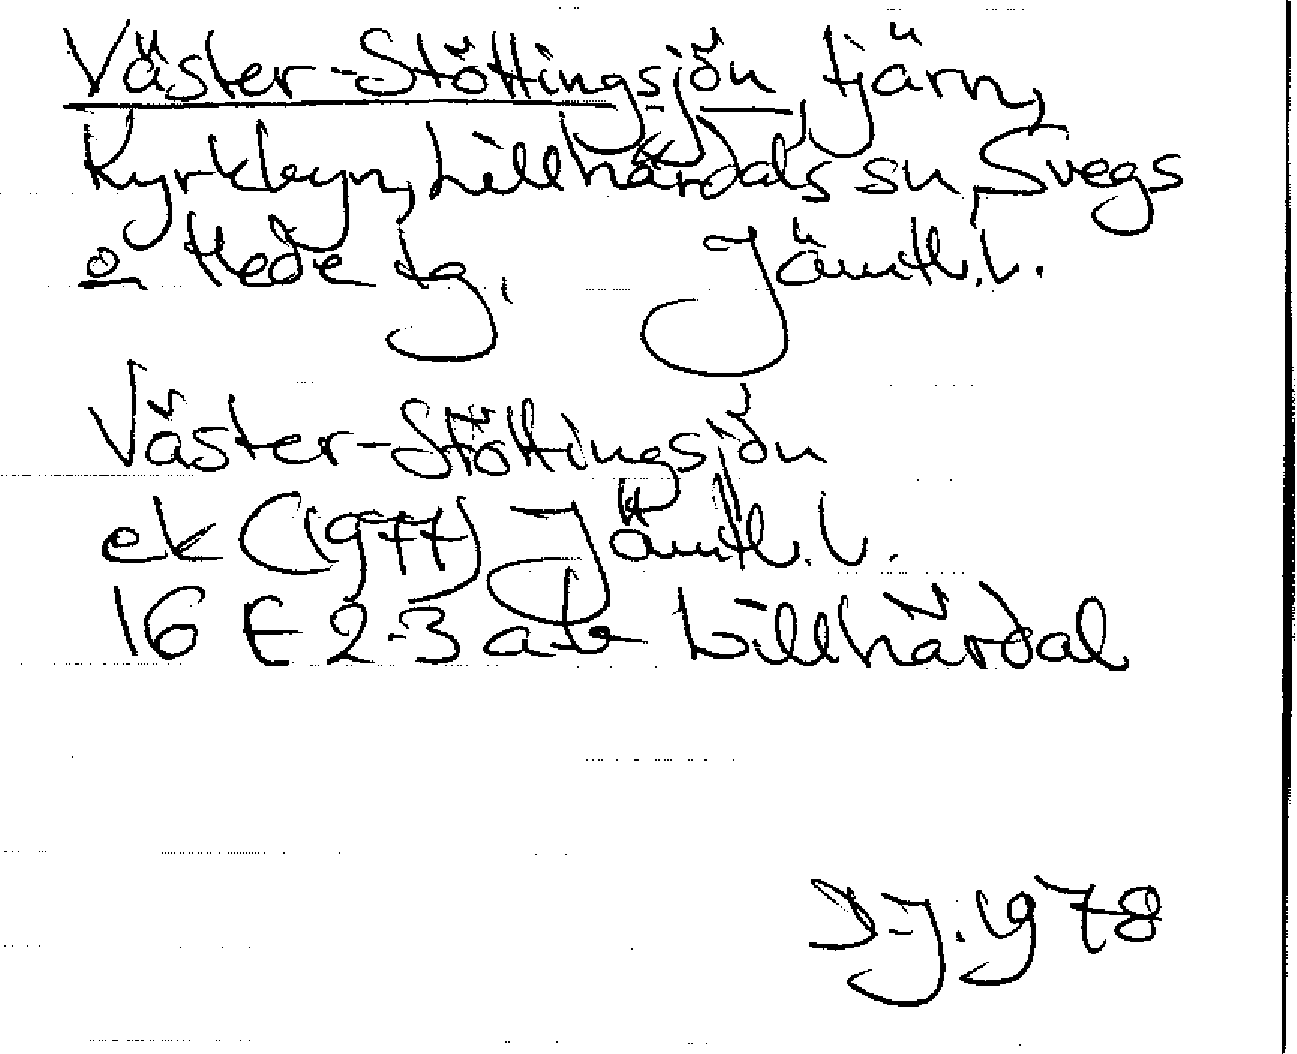 Väster-Stöttingsjön, tjärn,
Kyrkbyn, Lillhärdals sn, Svegs
o Hede tg. Jämtl.l.
Väster-Stöttingsjön
ek (1977) Jämtl.l.
16 E 2-3 a-b Lillhärdal
D-J. 1978